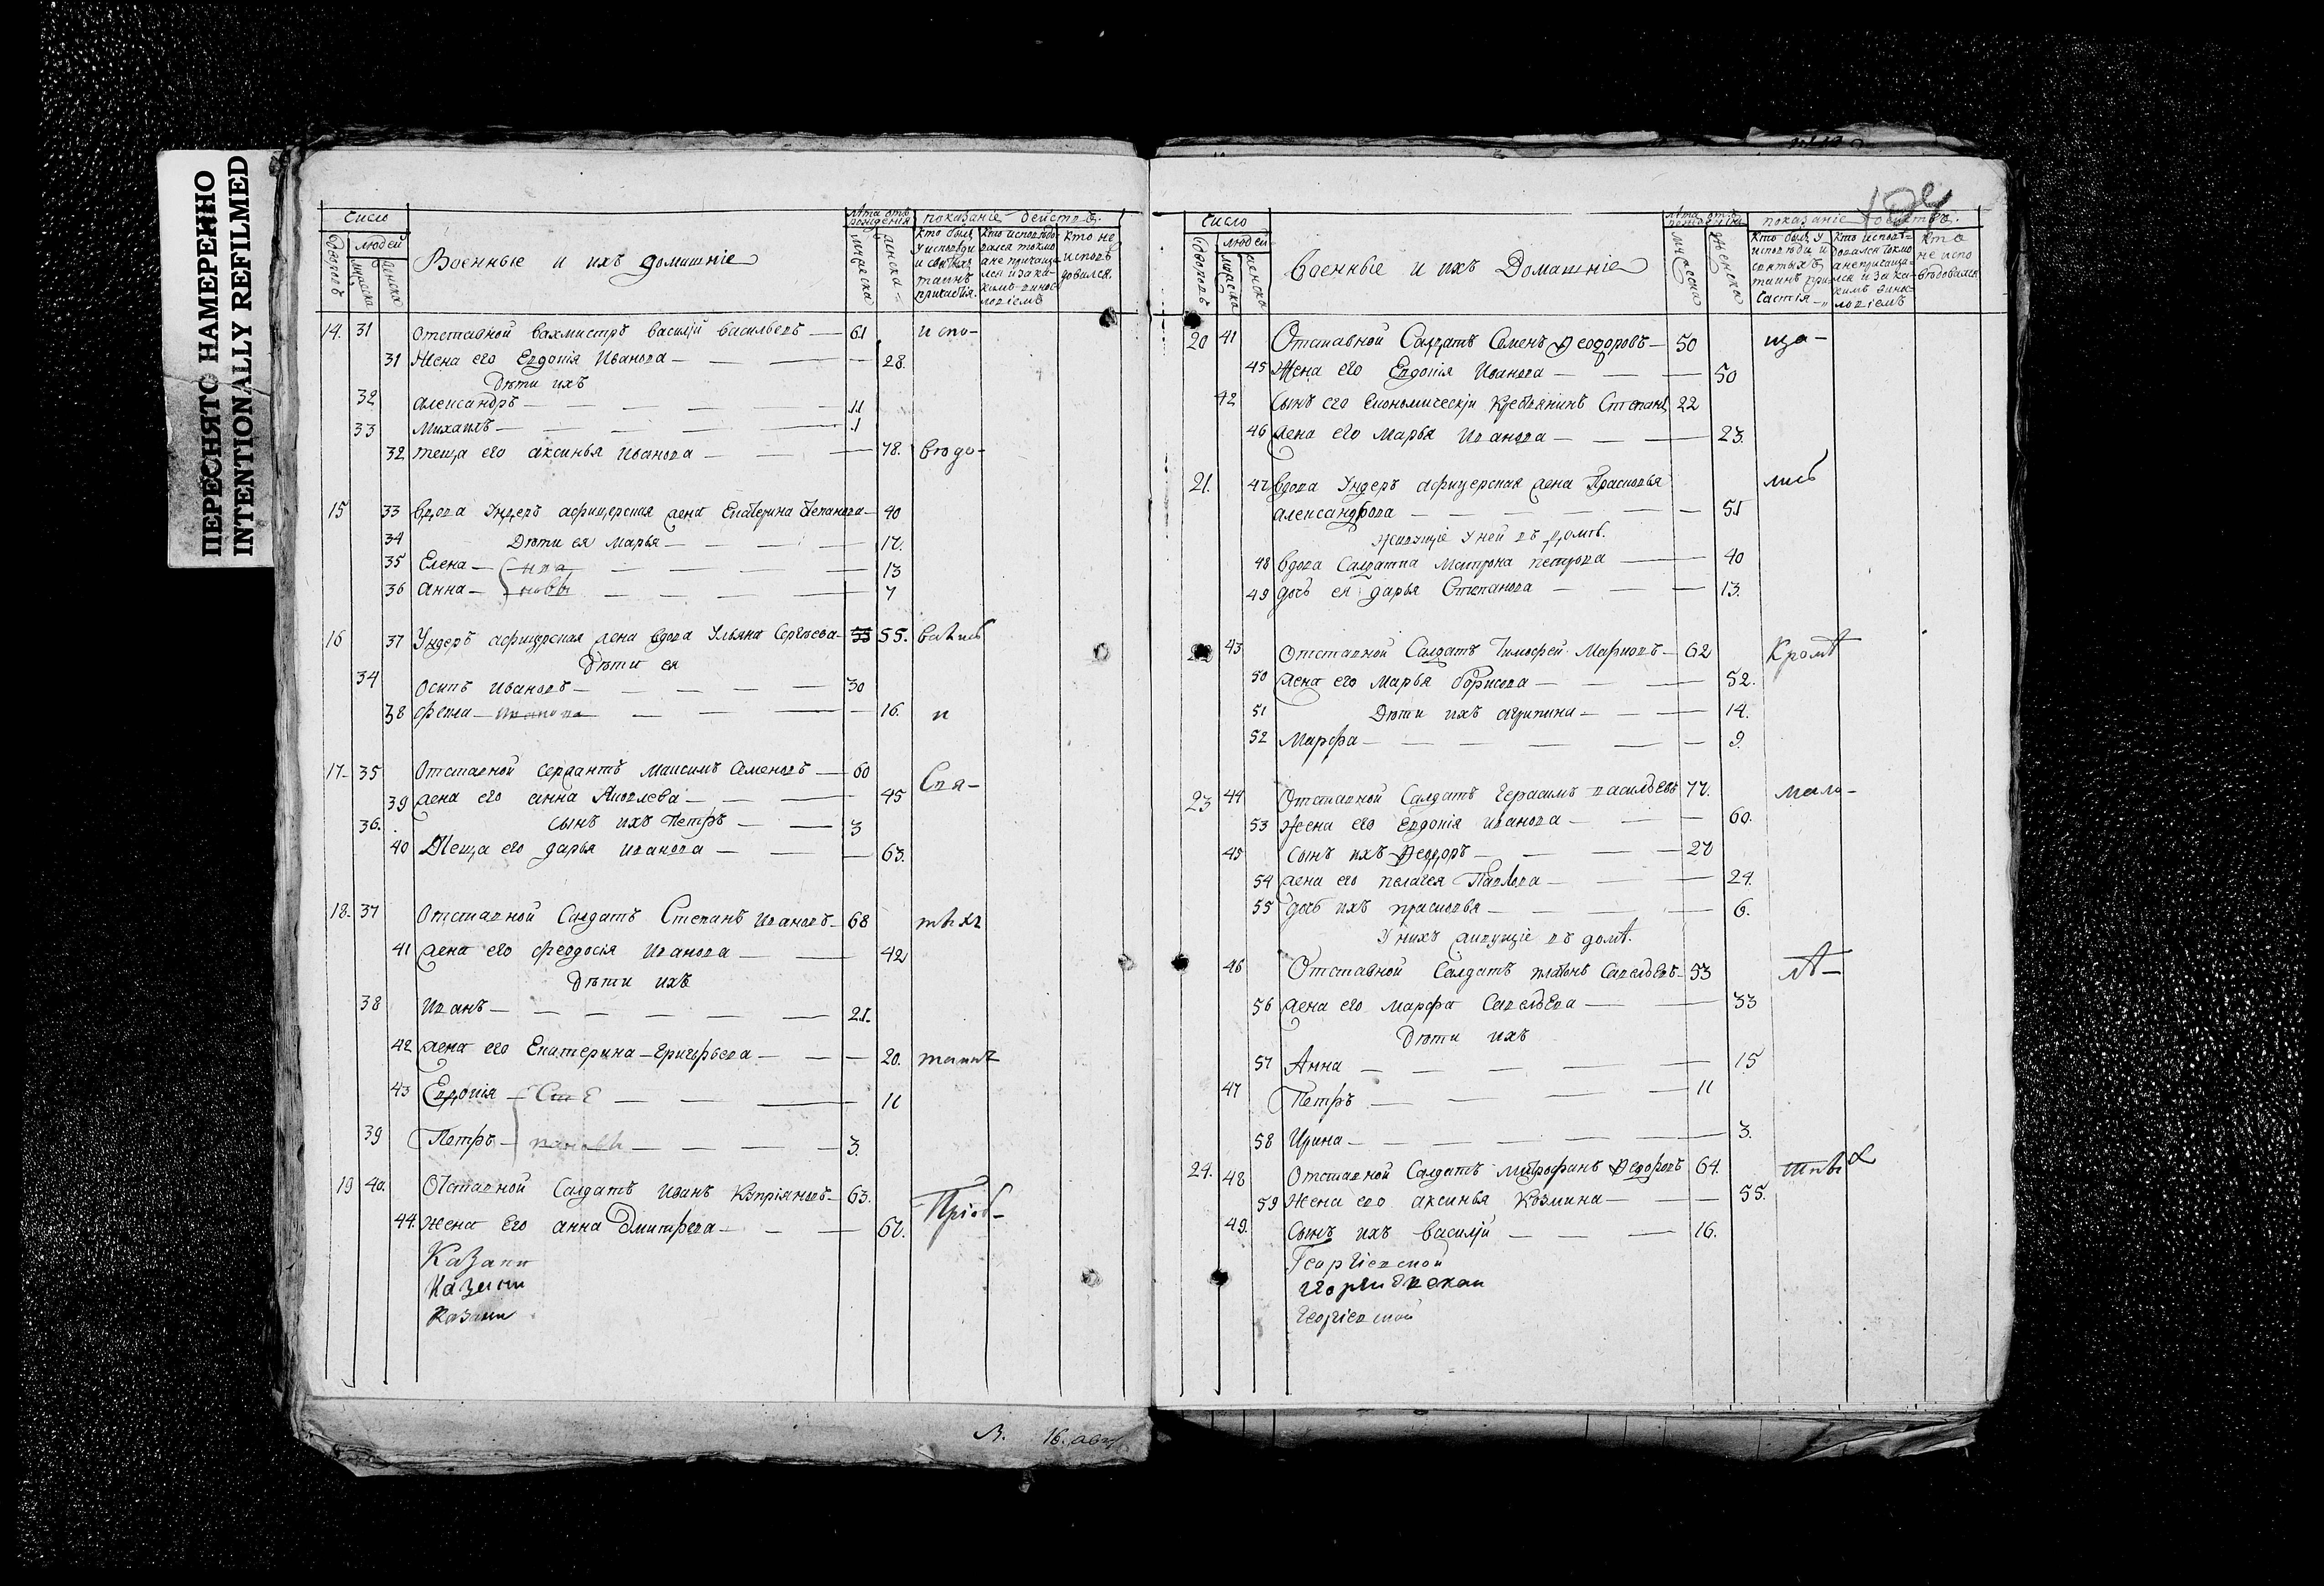 ПЕРЕСНЯТО НАМЕРЕННО
INTENTIONALLY REFILMED
Число
лѣта отъ рождения
показаніе действъ.
дворовъ
людей
мужеска
женска
Военные и ихъ домашніе
мужеска
женска
кто былъ у исповеди и святыхъ таинъ причастія.
кто исповѣдовался токмо а не причащался и за какимъ винословіемъ
кто не исповѣдовался.
14. 31 Отставной вахмистръ василій васильевъ 61 испо-
31 Жена его Евдокія Иванова 28.
Дѣти ихъ
32 александръ 11
33 Михаилъ 1
32 теща его аксинья Иванова 78. ведо-
15 33 вдова Ундеръ афицерская жена Екатерина Степанова 40
34 Дѣти ея марья 17.
35 Елена 13
36 анна 7
16 37 Ундеръ афицерская жена вдова Ульяна Сергѣева 55 55. вались
Дѣти ея
34 Осипъ ивановъ 30
38 фекла ивановна 16. и
17 35 Отставной сержантъ Максимъ Семеновъ 60 Свя-
39 жена его анна Яковлева 45
36. сынъ ихъ Петръ 3
40 Теща его дарья иванова 63.
18. 37 Отставной Салдатъ Степанъ ивановъ 68 тыхъ
41 жена его феодосія иванова 42
Дѣти ихъ
38 Иванъ 21.
42 жена его Екатерина Григорьева 20. таинъ
43 Евдокія Сте 11
39 Петръ пановы 3.
19 40. Отставной Салдатъ иванъ Купріяновъ 63. Пріоб-
44. жена Его анна Дмитрева 67.
Казани
Казани
Казани
16. авг
Число
лѣта отъ рожденія
показаніе действъ.
дворовъ
людей
мужеска
женска
Военные и ихъ Домашніе
мужеска
женска
Кто былъ у исповѣди и святыхъ таинъ причастія
кто исповѣдовался токмо а не причащался и за какимъ винословіемъ
кто не исповѣдовался
20 41 Отставной Салдатъ Семенъ Ѳеодоровъ 50 ща-
45 Жена его Евдокія Иванова 50
42 Сынъ его економическій крестьянинъ Степанъ 22
46 жена его Марья иванова 23.
21. 47 вдова Ундеръ афицерская жена Прасковья лись
александрова 51
живущіе у ней въ домѣ.
48 вдова Салдатка Матрона петрова 40
49 дочь ея дарья Степанова 13.
43 Отставной Салдатъ Тимофей Марковъ 62 Кромѣ
50 жена его марья борисова 52.
51 Дѣти ихъ агрипина 14.
52 Марфа 9.
23 44 Отставной Салдатъ Герасимъ васильевъ 77. мало-
53 Жена его Евдокія иванова 60.
45 Сынъ ихъ Ѳеодоръ 27
54 жена его пелагея Павлова 24.
55 дочь ихъ прасковья 6.
У нихъ живущіе въ домѣ.
46 Отставной Салдатъ платонъ Савельевъ 53 лѣ-
56 жена его марфа Савельева 33
Дѣти ихъ
57 Анна 15
47 Петръ 11
58 Ирина 3.
24. 48 Отставной Салдатъ митрофанъ Ѳедоровъ 64. тныхъ
59 Жена его аксинья Козмина 55.
49. Сынъ ихъ василій 16.
Георгіевской
Георгиевскои
Георгіевской